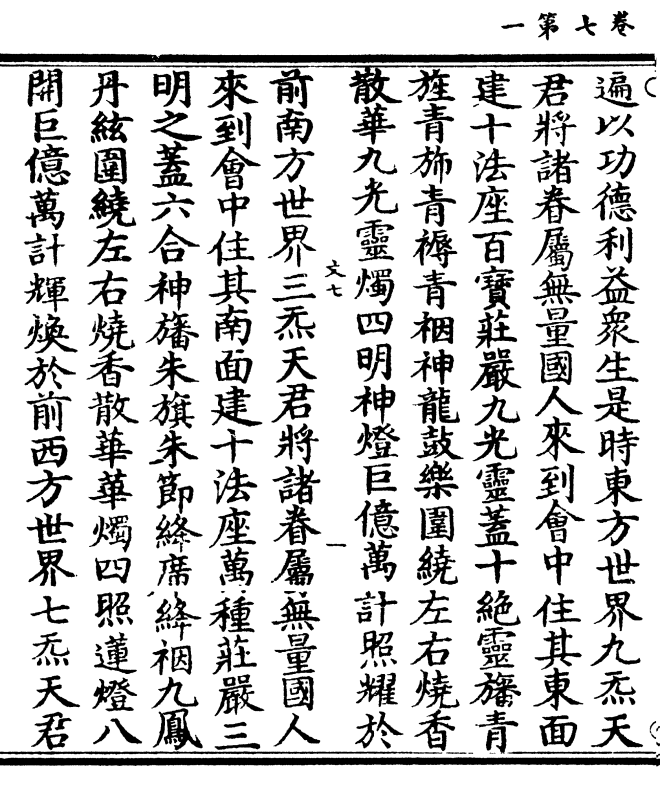 卷七第一
遍以功德利益衆生是時東方世界九炁天
君將諸眷屬無量國人來到會中住其東面
建十法座百寶莊嚴九光靈蓋十絶靈旛青
旌青斾青褥青裀神龍鼓樂圍繞左右燒香
散華九光靈燭四明神燈巨億萬計照耀於
文七
一
前南方世界三炁天君將諸眷屬無量國人
來到會中住其南面建十法座萬種莊嚴三
明之蓋六合神旛朱旗朱節絳席絳裀九鳳
丹絃圍繞左右燒香散華華燭四照蓮燈八
開巨億萬計輝煥於前西方世界七炁天君